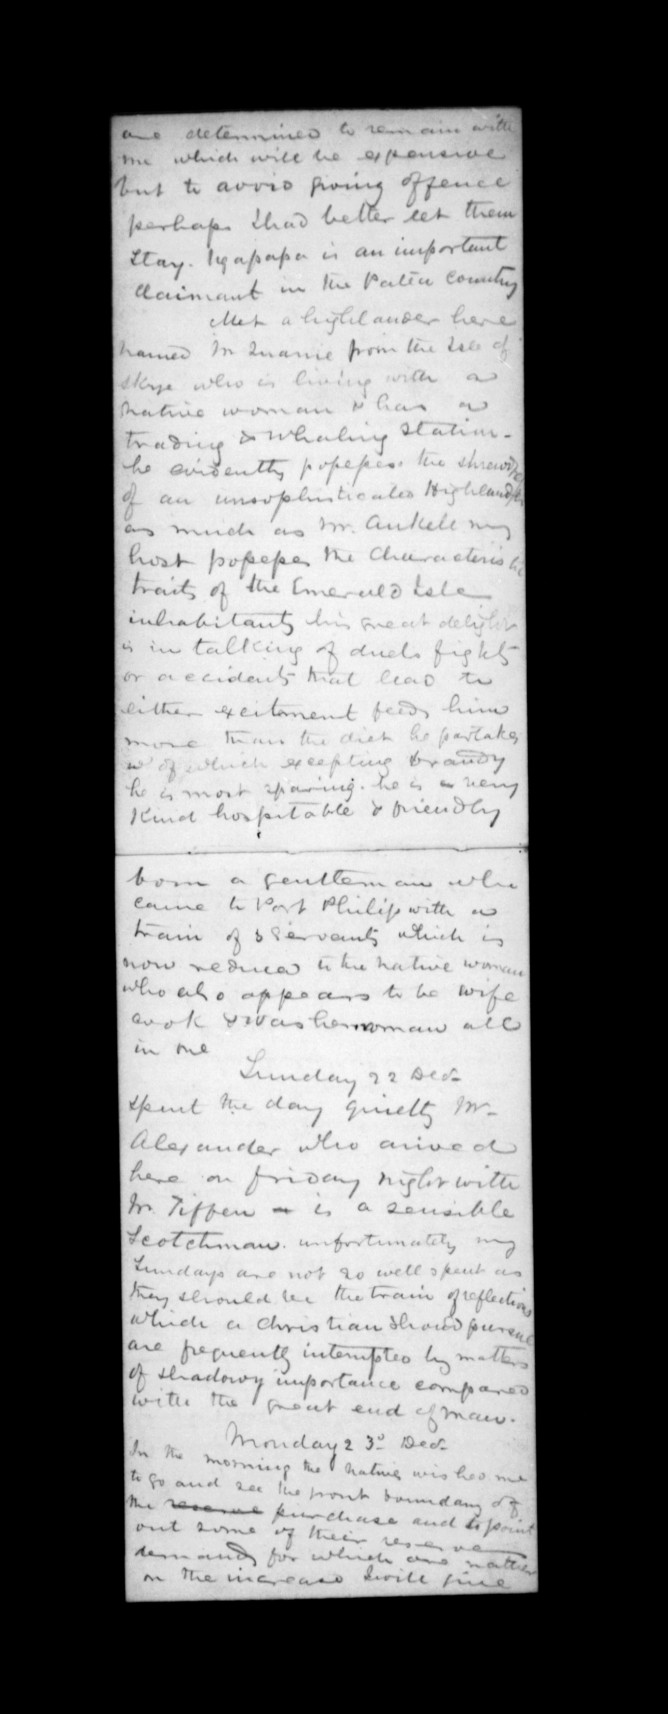 are determined to remain with
me which will be expensive
but to avoid giving offence
perhaps I had better let them
stay. Ngapapa is an important
claimant in the Patea Country
Met a highlander here
named Mr from the Isle of
Skye who is living with a
native woman & has a
trading & Whaling Station -
he evidently possesses the
of an unsophisticated Highlander
as much as Mr. Ankell my
host possesses the characteristic
traits of the Emerald Isle
inhabitants his great delight
is in talking of duels fights
or accidents that lead to
either excitement feeds him
more than the diet he partakes
of which excepting brandy
he is most sparing. he is a very
kind hospitable & friendly
born a gentleman who
came to Port Philip with a
train of 8 Servants which is
now reduced to the native woman
who also appears to be wife
cook & washerwoman all
in one
Sunday 22 Decr
spent the day quietly Mr
Alexander who arived
here on friday night with
Mr. Tiffen is a sensible
Scotchman. unfortunately my
Sundays are not so well spent as
they should be the train of reflection
which a christian should pursue
are frequently interrupted by matters
of shadowy importance compared
with the great end of man.
Monday 23d Decr
In the morning the natives wished me
to go and see the front boundary of
the reserve purchase and to point
out some of their reserve
demands for which are rather
on the increase I will give